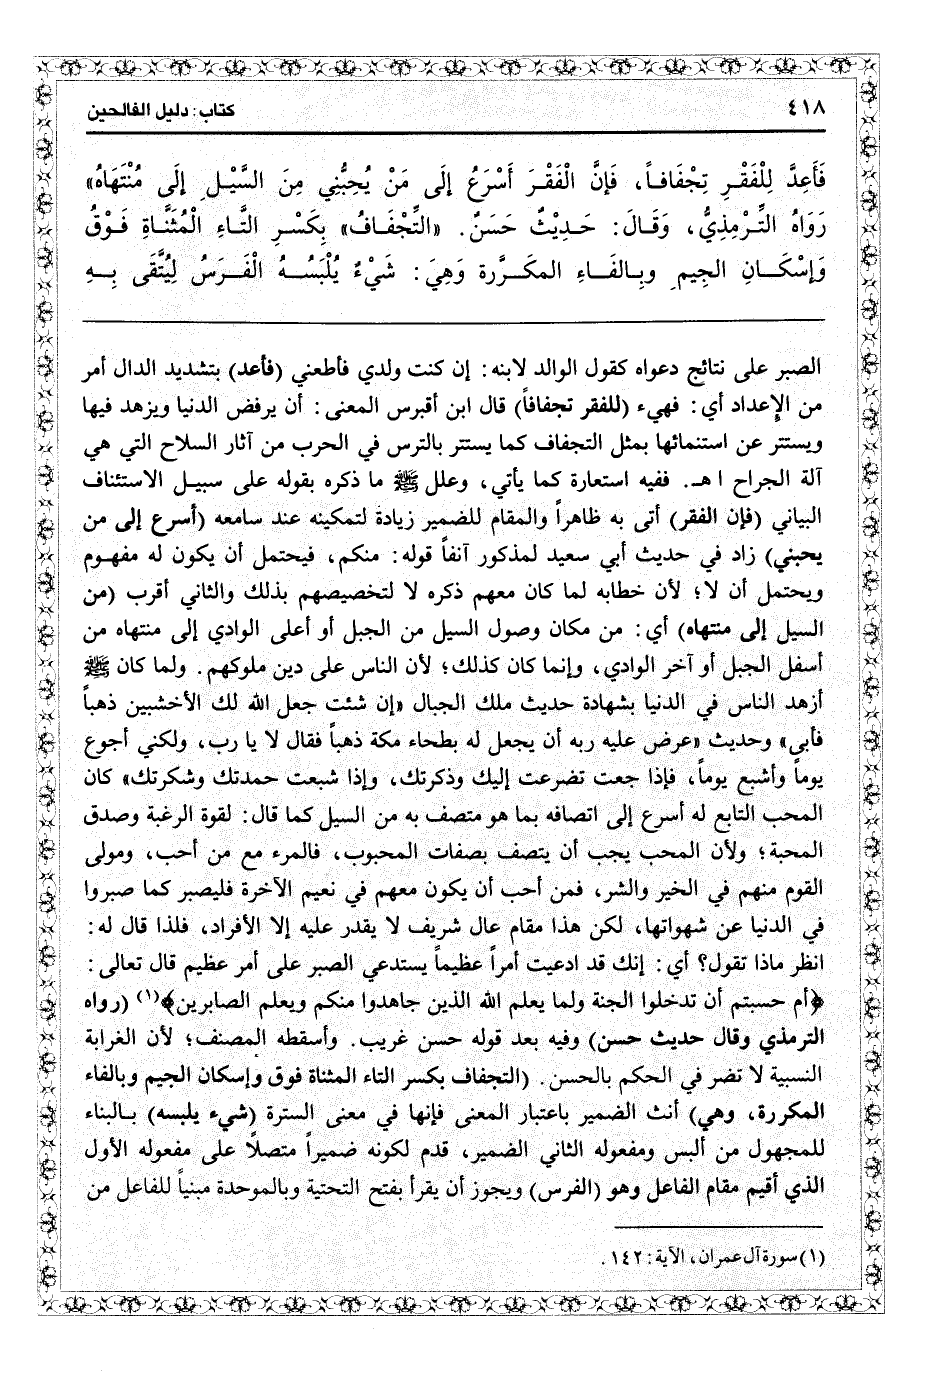 ٤١٨
كتاب: دليل الفالحين
فَأَعِدَّ لِلْفَقْرِ تِجْفَافاً، فَإِنَّ الْفَقْرَ أَسْرَعُ إِلَى مَنْ يُحِبُّنِي مِنَ السَّيْلِ إِلَى مُنْتَهَاهُ»
رَوَاهُ التِّرْمِذِيُّ، وَقَالَ: حَدِيْثٌ حَسَنٌ. «التِّجْفَافُ» بِكَسْرِ التَّاءِ الْمُثَنَّاةِ فَوْقُ
وَإِسْكَانِ الجِيمِ وبِالفَاءِ المكَرَّرة وَهِيَ: شَيْءٌ يُلْبَسُهُ الْفَرَسُ لِيُتَّقَى بِهِ
الصبر على نتائج دعواه كقول الوالد لابنه: إن كنت ولدي فأطعني (فأعد) بتشديد الدال أمر
من الإِعداد أي: فهيء (للفقر تجفافاً) قال ابن أقبرس المعنى: أن يرفض الدنيا ويزهد فيها
ويستتر عن استنمائها بمثل التجفاف كما يستتر بالترس في الحرب من آثار السلاح التي هي
آلة الجراح ا هـ. ففيه استعارة كما يأتي، وعلل ﷺ ما ذكره بقوله على سبيل الاستئناف
البياني (فإن الفقر) أتى به ظاهراً والمقام للضمير زيادة لتمكينه عند سامعه (أسرع إلى من
يحبني) زاد في حديث أبي سعيد لمذكور آنفاً قوله: منكم، فيحتمل أن يكون له مفهوم
ويحتمل أن لا؛ لأن خطابه لما كان معهم ذكره لا لتخصيصهم بذلك والثاني أقرب (من
السيل إلى منتهاه) أي: من مكان وصول السيل من الجبل أو أعلى الوادي إلى منتهاه من
أسفل الجبل أو آخر الوادي، وإنما كان كذلك؛ لأن الناس على دين ملوكهم. ولما كان ﷺ
أزهد الناس في الدنيا بشهادة حديث ملك الجبال «إن شئت جعل الله لك الأخشبين ذهباً
فأبى» وحديث «عرض عليه ربه أن يجعل له بطحاء مكة ذهباً فقال لا يا رب، ولكني أجوع
يوماً وأشبع يوماً، فإذا جعت تضرعت إليك وذكرتك، وإذا شبعت حمدتك وشكرتك» كان
المحب التابع له أسرع إلى اتصافه بما هو متصف به من السيل كما قال: لقوة الرغبة وصدق
المحبة؛ ولأن المحب يجب أن يتصف بصفات المحبوب، فالمرء مع من أحب، ومولى
القوم منهم في الخير والشر، فمن أحب أن يكون معهم في نعيم الآخرة فليصبر كما صبروا
في الدنيا عن شهواتها، لكن هذا مقام عال شريف لا يقدر عليه إلا الأفراد، فلذا قال له:
انظر ماذا تقول؟ أي: إنك قد ادعيت أمراً عظيماً يستدعي الصبر على أمر عظيم قال تعالى:
﴿أم حسبتم أن تدخلوا الجنة ولما يعلم الله الذين جاهدوا منكم ويعلم الصابرين﴾(١) (رواه
الترمذي وقال حديث حسن) وفيه بعد قوله حسن غريب. وأسقطه المصنف؛ لأن الغرابة
النسبية لا تضر في الحكم بالحسن. (التجفاف بكسر التاء المثناة فوق وإسكان الجيم وبالفاء
المكررة، وهي) أنث الضمير باعتبار المعنى فإنها في معنى السترة (شيء يلبسه) بالبناء
للمجهول من ألبس ومفعوله الثاني الضمير، قدم لكونه ضميراً متصلاً على مفعوله الأول
الذي أقيم مقام الفاعل وهو (الفرس) ويجوز أن يقرأ بفتح التحتية وبالموحدة مبنياً للفاعل من
(١) سورة آل عمران، الآية: ١٤٢.